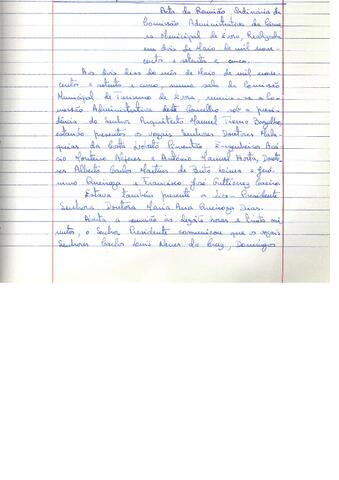 Acta da Reunião Ordinária da
Comissão Administrativa da Câma-
ra Municipal de Évora, Realizada
em dois de Maio de mil nove-
centos e setenta e cinco.
Aos dois dias do mês de Maio de mil nove-
centos e setenta e cinco, numa sala da Comissão
Municipal de Turismo de Évora, reuniu-se a Co-
missão Administrativa deste Concelho sob a presi-
dência do Senhor Arquitecto Manuel
estando presentes os vogais Senhores Doutores
da Costa Lobato Pimentão Engenheiros
Monteiro e António Manuel Horta,
Alberto Carlos Martins de Brito e
e Francisco José
Estava também presente a Vice-Presidente
Senhora Doutora Maria Ana Dias.
Aberta a reunião às dezoito horas e trinta mi-
nutos, o Senhor Presidente comunicou que os vogais
Senhores Carlos Luís Nunes da Cruz, Domingos